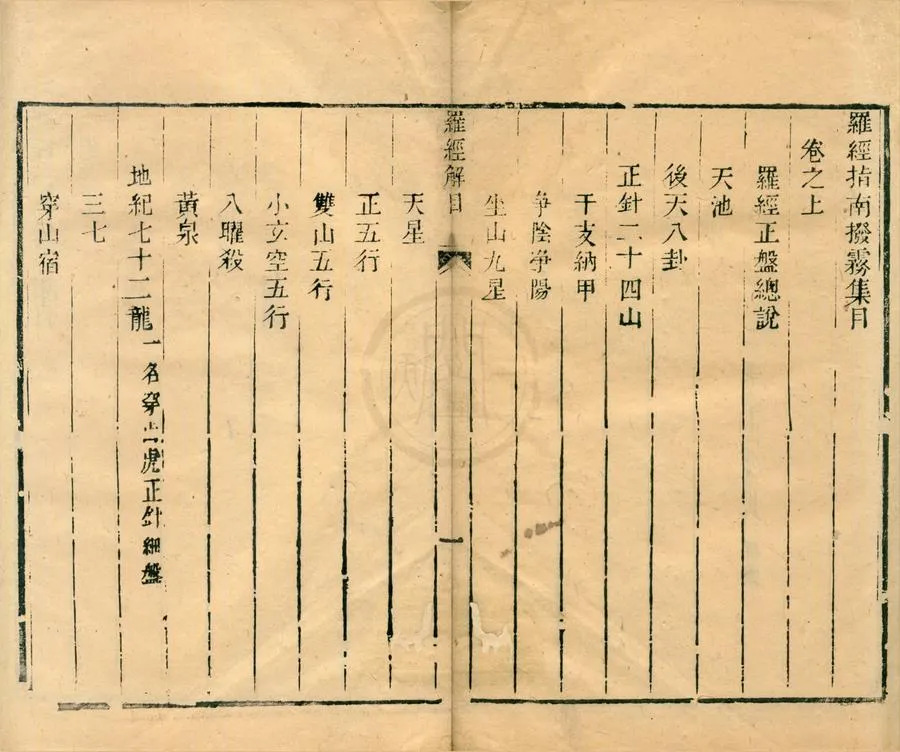 羅經指南撥霧集目
卷之上
羅經正盤總說
天池
後天八卦
正針二十四山
干支納甲
爭陰爭陽
坐山九星
羅經解目
一
天星
正五行
雙山五行
小玄空五行
八曜殺
黃泉
地紀七十二龍 一名穿山虎正針細盤
三七
穿山宿